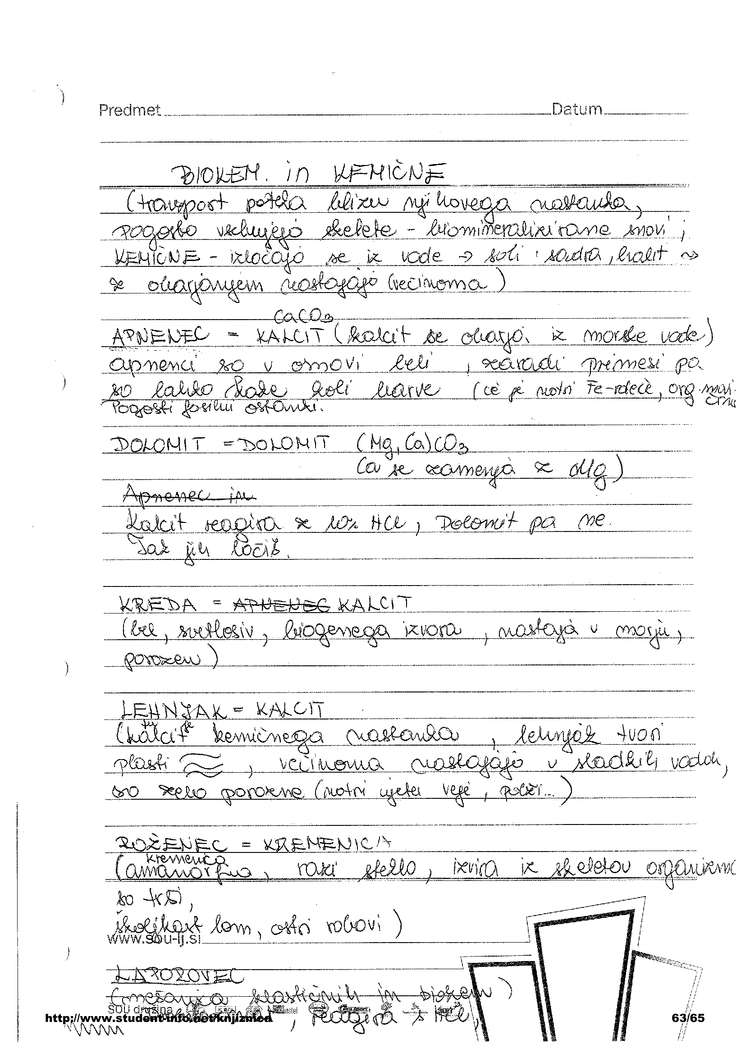 Predmet Datum
BIOKEM. in KEMIČNE
(transport poteka blizu njihovega nastanka,
pogosto vsebujejo skelete - biomineralizirane snovi;
KEMIČNE - izločajo se iz vode → soli: sadra, halit ↝
z obarjanjem nastajajo (večinoma)
CaCO3
APNENEC = KALCIT (kalcit se obarja iz morske vode)
apnenci so v osnovi beli, zaradi primesi pa
so lahko kake koli barve (če je notri Fe-rdeče, org.
Pogosti fosilni ostanki.
DOLOMIT = DOLOMIT (Mg, Ca)CO3
Ca se zamenja z Mg)
Apnenec in
Kalcit reagira z 10% HCl, Dolomit pa ne.
Tak jih ločiš.
KREDA = APNENEC KALCIT
(bel, svetlosiv, biogenega izvora, nastaja v morju,
porozen)
LEHNJAK = KALCIT
(kalcit kemičnega nastanka, lehnjak tvori
plasti, večinoma nastajajo v sladkih vodah,
so zelo porozne (notri ujete veje, polži...)
ROŽENEC = KREMENICA
kremenica
(amamorfna, razi steklo, izvira iz skeletov organizmo
so trdi,
školjkast lom, ostri robovi)
www.sou-lj.si
LAPOROVEC
(mešanja klastičnih in biokem)
SOU družina
http://www.student-info.net/knjiznica , reagira s HCl, 63/65